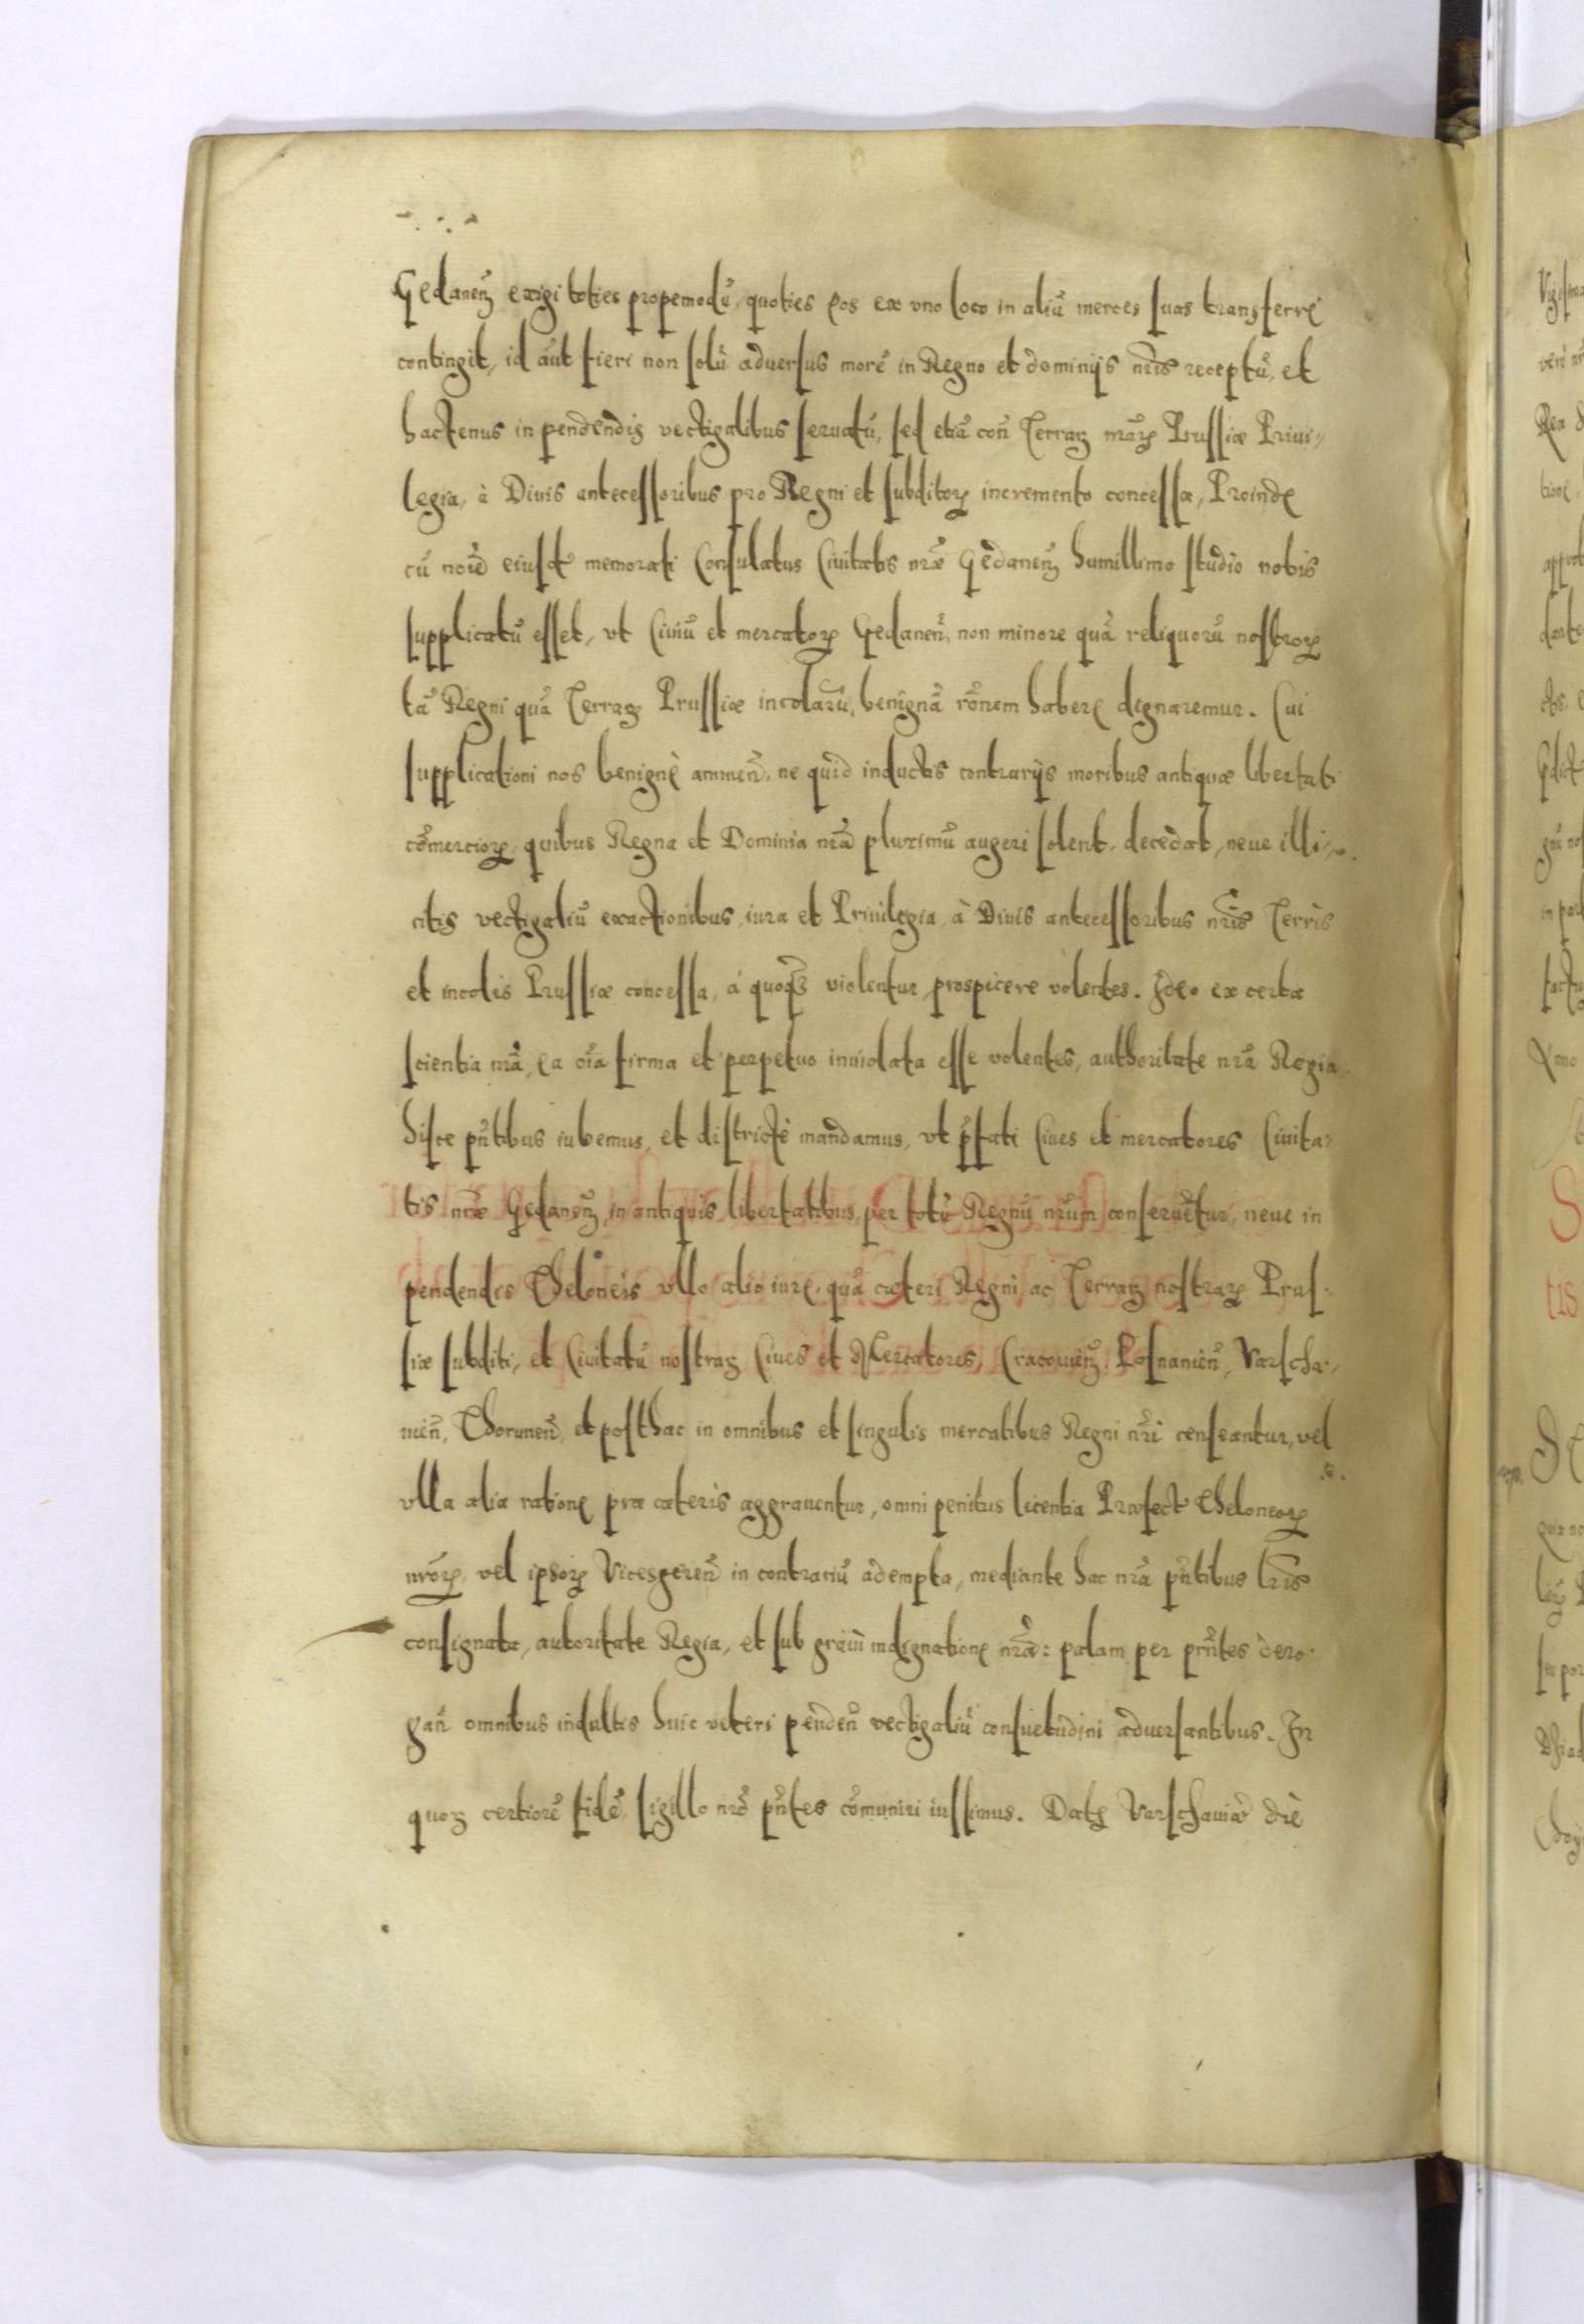 Gedanenꝫ exigi toties propemodū, quoties eos ex vno loco in aliū merces suas transferre
contingit, id aūt fieri non solū aduersus morē in Regno et dominijs nr̄is receptū, et
hactenus in pendendis vectigalibus seruatū, sed etiā con̄ Terraꝝ nr̄aꝝ Prussiæ Priui-
legia, à Diuis antecessoribus pro Regni et subditoꝝ incremento concessa, Proinde
cū noīe eiusd memorati Consulatus Ciuitatis nr̄æ Gedanenꝫ humillimo studio nobis
supplicatū esset, vt Ciuiū et mercatoꝝ Gedanen̄, non minore quā reliquorū nostroꝝ
tā Regni quā Terraꝝ Prussiæ incolarū, benignā rōnem habere dignaremur. Cui
supplicationi nos benignè annuen̄, ne quid inductis contrarijs moribus antiquæ libertati
cōmercioꝝ, quibus Regna et Dominia nr̄a plurimū augeri solent, decedat, neue illi-
citis vectigaliū exactionibus, iura et Priuilegia, à Diuis antecessoribus nr̄is Terris
et incolis Prussiæ concessa, à quoqꝫ violentur, prospicere volentes. Ideo ex certa
scientia nr̄a, ea oīa firma et perpetuo inuiolata esse volentes, authoritate nr̄a Regia
hisce pn̄tibus iubemus, et districtè mandamus, vt pr̄fati Ciues et mercatores Ciuita-
tis nr̄æ Gedanenꝫ, in antiquis libertatibus, per totū Regnū nr̄um conseruētur, neue in
pendendis Theloneis vllo alio iure, quā cæteri Regni ac Terraꝝ nostraꝝ Prus-
siæ subditi, et Ciuitatū nostraꝝ Ciues et Mercatores, Cracouienꝫ, Posnanien̄, Varscha-
uien̄, Thorunen̄, et posthac in omnibus et singulis mercatibus Regni nr̄i censeantur, vel
vlla alia ratione præ cæteris aggrauentur, omni penitus licentia Præfect Theloneoꝝ
nr̄oꝝ, vel ipsoꝝ Vicesgeren̄ in contrariū adempta, mediante hac nr̄a pn̄tibus lr̄is
consignata, autoritate Regia, et sub graui indignatione nr̄a: palam per pn̄tes dero-
gan̄ omnibus indultis huic veteri penden̄ vectigaliū consuetudini aduersantibus. In
quoꝝ certiorē fidē, sigillo nr̄o pn̄tes cōmuniri iussimus. Datꝫ Varschauiæ die